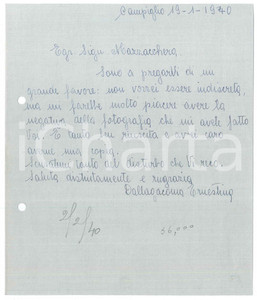 Campiglio 19-1-1940
Egr. Sign. Mazzacchera.
Sono a pregarLi di un
grande favore: non vorrei essere indiscreta,
ma mi farebbe molto piacere avere la
negativa della fotografia che mi avete fatto
Voi. È molto ben riuscita e avrei caro
averne una copia.
Scusatemi tanto del disturbo che Vi reco.
Saluta distintamente e ringrazia
Dallagiacoma Ernestina
2/2/40
56,000